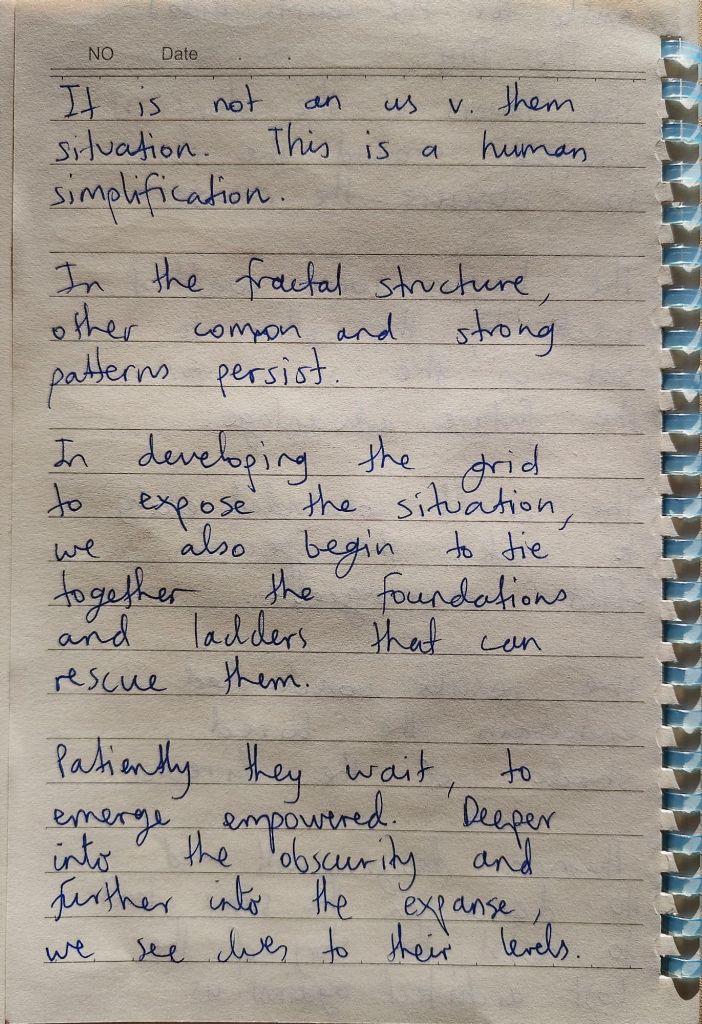 NO Date . .
It is not an us v. them
situation. This is a human
simplification.
In the fractal structure,
other common and strong
patterns persist.
In developing the grid
to expose the situation,
we also begin to tie
together the foundations
and ladders that can
rescue them.
Patiently they wait, to
emerge empowered. Deeper
into the obscurity and
further into the expanse,
we see clues to their levels.